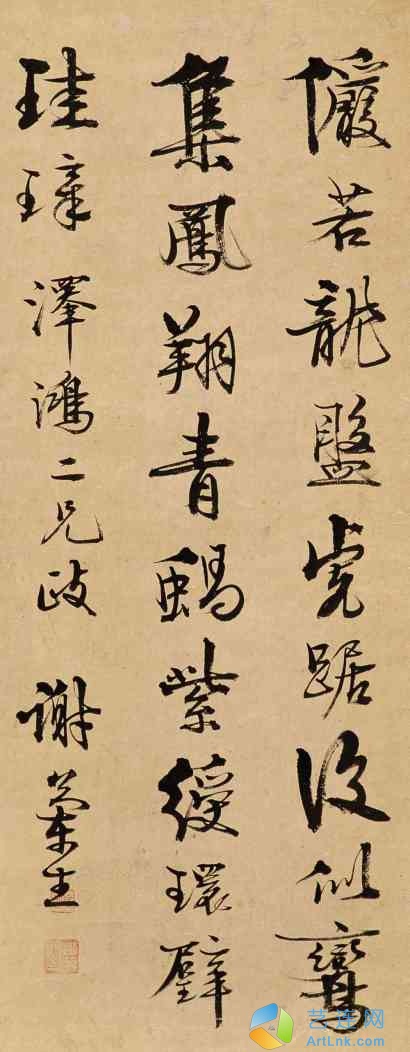 儼若龍盤虎踞復似鸞
集鳳翔青紫綬環璧
珪璋 澤鴻二兄政 謝蘭生
艺连网
ArtLnk.com